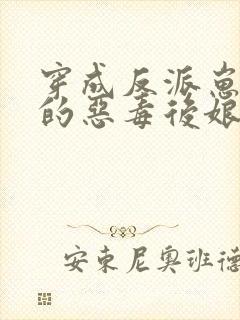 穿成反派崽
的惡毒後娘
安東尼奧班德